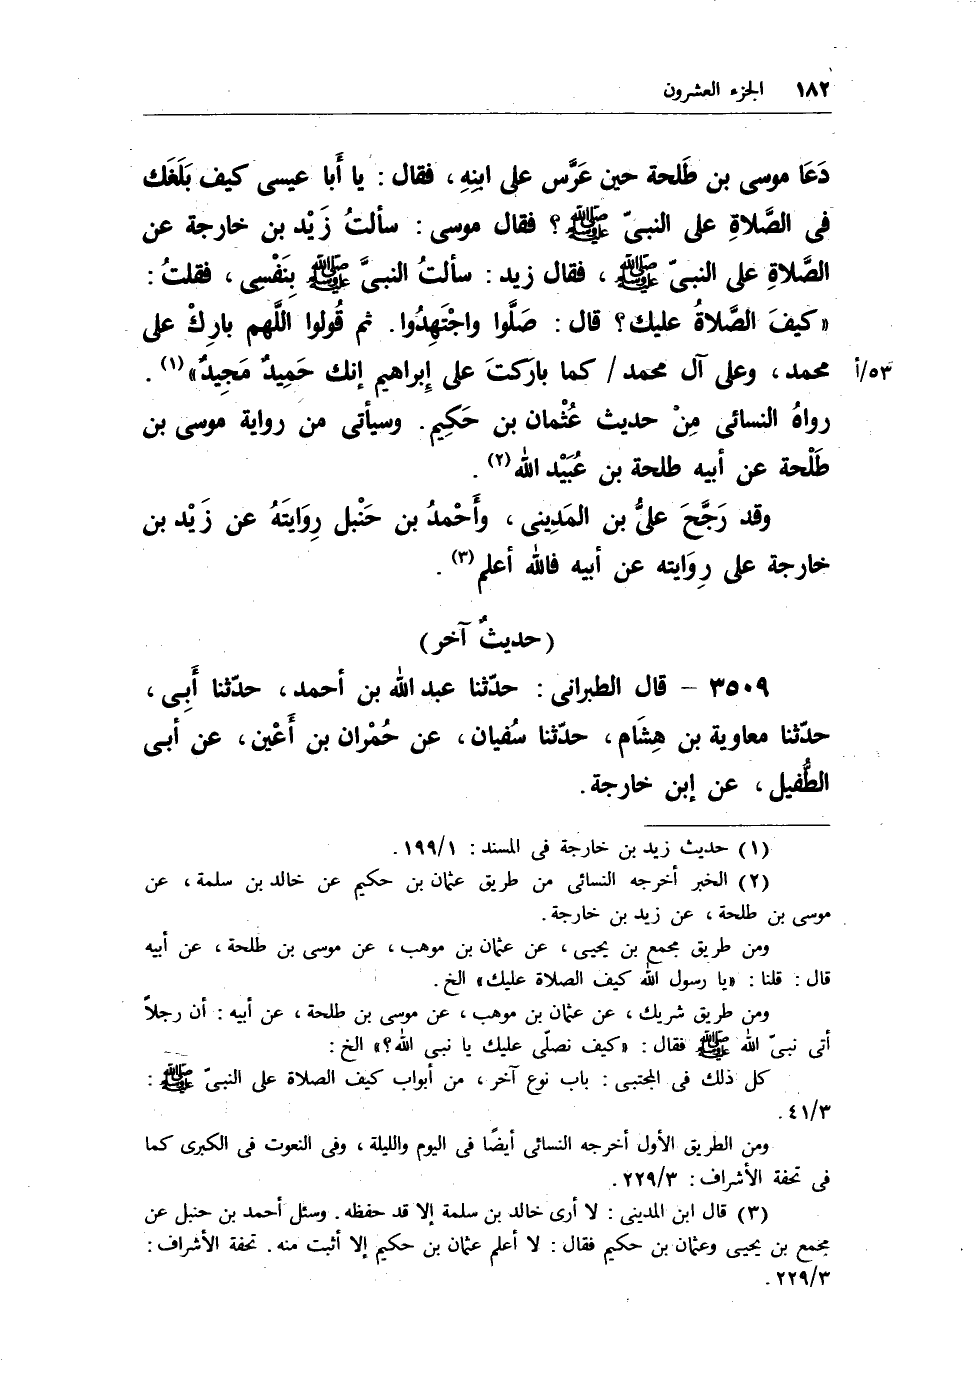 ١٨٢ الجزء العشرون
دَعَا موسى بن طَلحة حين عَرَّس على ابنِهِ ، فقال : يا أَبا عيسى كيف بَلَغَك
فى الصَّلاةِ على النبىّ ﷺ ؟ فقال موسى : سألتُ زَيْد بن خارجة عن
الصَّلاةِ على النبىّ ﷺ ، فقال زيد : سألتُ النبىَّ ﷺ بِنَفْسِى ، فقلتُ :
«كيفَ الصَّلاةُ عليك؟ قال : صَلَّوا واجْتَهِدُوا. ثم قُولوا اللَّهم بارِكْ على
محمد ، وعلى آل محمد / كما باركتَ على إِبراهيم إنك حَمِيدٌ مَجِيدٌ» (١) . ٥٣/أ
رواهُ النسائى مِنْ حديث عُثْمان بن حَكِيم. وسيأتى من رواية موسى بن
طَلْحة عن أبيه طلحة بن عُبَيْد الله (٢) .
وقد رَجَّحَ علىُّ بن المَدِينى ، وأَحْمدُ بن حَنْبل رِوَايتَهُ عن زَيْد بن
خارجة على رِوَايته عن أبيه فالله أعلم (٣) .
(حديثٌ آخر)
٣٥٠٩ – قال الطبرانى : حدّثنا عبد الله بن أحمد ، حدّثنا أَبِى ،
حدّثنا معاوية بن هِشَام ، حدّثنا سُفيان ، عن حُمْران بن أَعْين ، عن أبى
الطُّفيل ، عن إبن خارجة.
(١) حديث زيد بن خارجة فى المسند : ١٩٩/١ .
(٢) الخبر أخرجه النسائى من طريق عثمان بن حكيم عن خالد بن سلمة ، عن
موسى بن طلحة ، عن زيد بن خارجة .
ومن طريق مجمع بن يحيى ، عن عثمان بن موهب ، عن موسى بن طلحة ، عن أبيه
قال : قلنا : «يا رسول الله كيف الصلاة عليك» الخ .
ومن طريق شريك ، عن عثمان بن موهب ، عن موسى بن طلحة ، عن أبيه : أن رجلاً
أتى نبىّ الله ﷺ فقال : «كيف نصلّى عليك يا نبى الله؟» الخ :
كل ذلك فى المجتبى : باب نوع آخر ، من أبواب كيف الصلاة على النبىّ ﷺ :
٤١/٣ .
ومن الطريق الأول أخرجه النسائى أيضًا فى اليوم والليلة ، وفى النعوت فى الكبرى كما
فى تحفة الأشراف : ٢٢٩/٣ .
(٣) قال ابن المدينى : لا أرى خالد بن سلمة إلا قد حفظه . وسئل أحمد بن حنبل عن
مجمع بن يحيى وعثمان بن حكيم فقال : لا أعلم عثمان بن حكيم إلا أثبت منه . تحفة الأشراف :
٢٢٩/٣ .